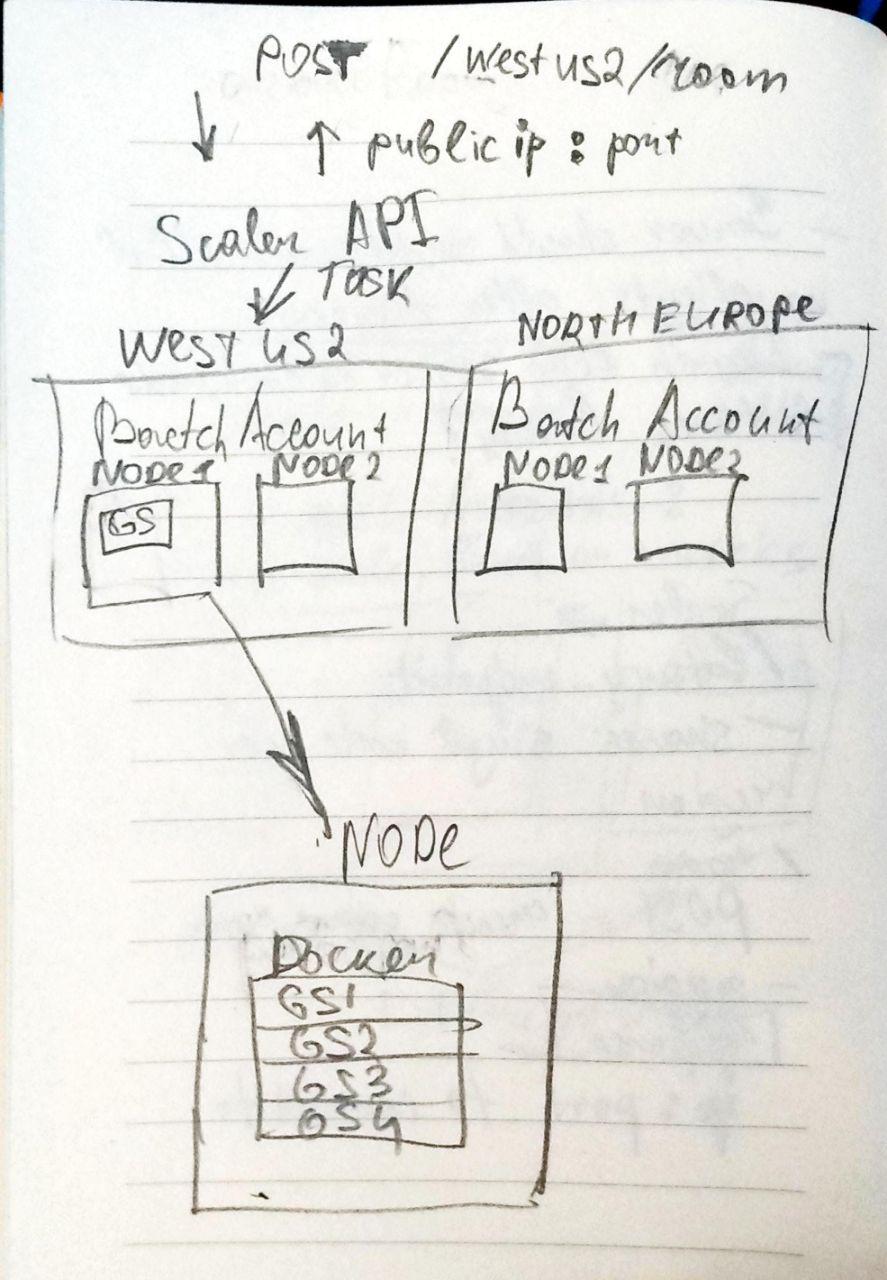 POST /westus2/room
public ip : port
Scaler API
TASK
West us2
NORTH EUROPE
Batch Account
Batch Account
NODe1 NODe2
NODe1 NODe2
GS
NODe
Docker
GS1
GS2
GS3
GS4